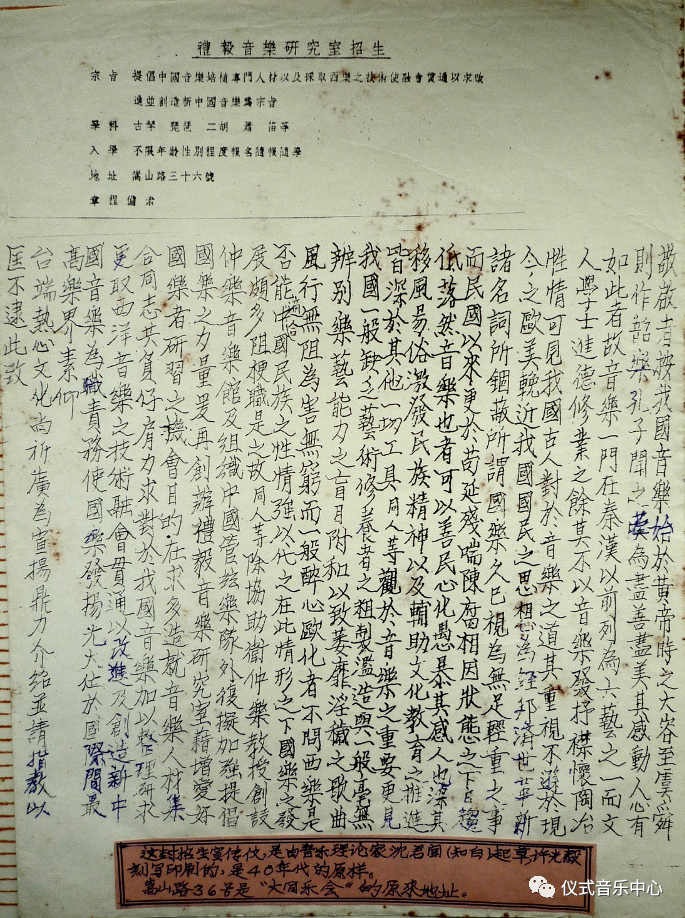 禮穀音樂研究室招生
宗旨 提倡中國音樂培植專門人材以及採取西樂之技術使融會貫通以求改
進並創造新中國音樂為宗旨
學科 古琴 琵琶 二胡 簫 笛等
入學 不限年齡性別程度報名隨報隨學
地址 嵩山路三十六號
章程備索
敬啟者按我國音樂始於黃帝時之大容至虞舜
則作韶樂孔子聞之嘆為盡善盡美其感動人心有
如此者故音樂一門在秦漢以前列為六藝之一而文
人學士進德修業之餘莫不以音樂發抒襟懷陶冶
性情可見我國古人對於音樂之道其重視不遜於現
今之歐美輓近我國國民之思想為經邦濟世等新
諸名詞所錮蔽所謂國樂久已視為無足輕重之事
而民國以來更於苟延殘喘陳腐相因狀態之下日趨
低落然音樂也者可以善民心化愚暴其感人也深其
移風易俗激發民族精神以及輔助文化教育之推進
皆深於其他一切工具同人等觀於音樂之重要更見
我國一般缺乏藝術修養者之粗製濫造與一般毫無
辨別樂藝能力之盲目附和以致萎靡淫穢之歌曲
風行無阻為害無窮而一般醉心歐化者不問西樂是
否能適合中國民族之性情強以代之在此情形之下國樂之發
展頗多阻梗職是之故同人等除協助衛仲樂教授創設
仲樂音樂館及組織中國管絃樂隊外復擬加強提倡
國樂之力量爰再創辦禮穀音樂研究室藉增愛好
國樂者研習之機會目的在求多造就音樂人材集
合同志共負仔肩力求對於我國音樂加以整理研求
更取西洋音樂之技術融會貫通以改進及創造新中
國音樂為職責務使國樂發揚光大仕於國際間最
高樂界素仰
台端熱心文化尚祈廣為宣揚鼎力介紹並請指教以
匡不逮此致
这封招生宣传伩,是由音乐理论家沈君闻(知白)起草,许光毅
刻写印刷的,是40年代的原样。
嵩山路36号是"大同乐会"的原来地址。
仪式音乐中心